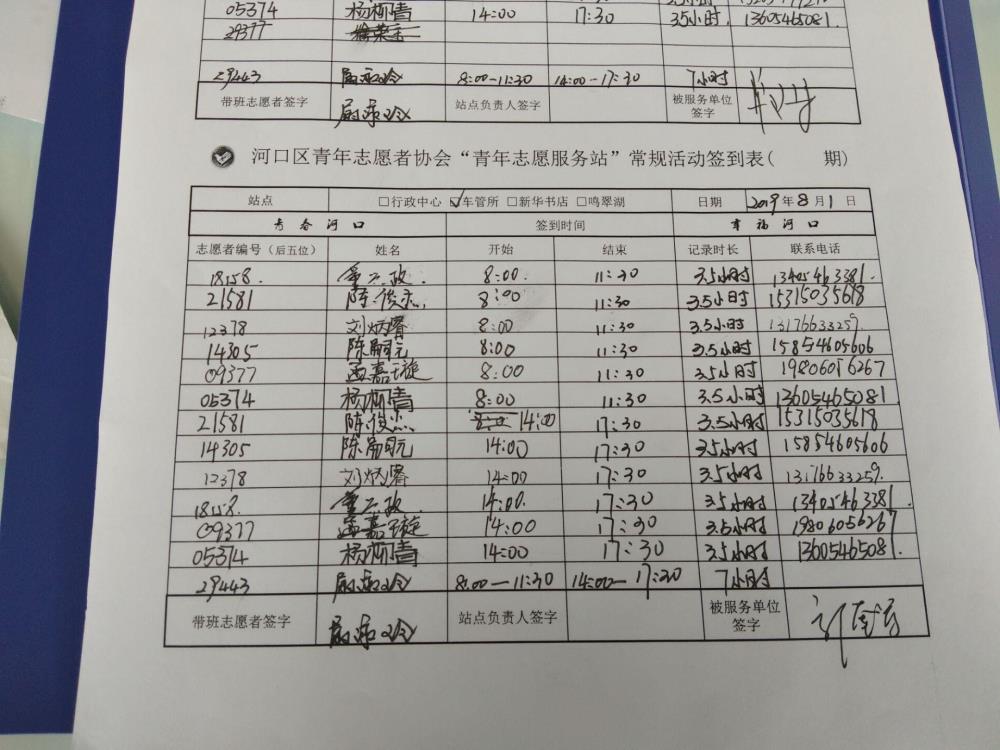 05374 杨柳青 14:00 17:30 3.5小时 13605465081.
29377
29443 8:00—11:30 14:00—17:30 7小时
带班志愿者签字 站点负责人签字 被服务单位签字
河口区青年志愿者协会“青年志愿服务站”常规活动签到表( 期)
站点 □行政中心 ☑车管所 □新华书店 □鸣翠湖 日期 2019年8月1日
青春河口 签到时间 幸福河口
志愿者编号(后五位) 姓名 开始 结束 记录时长 联系电话
18158. 8:00. 11:30 3.5小时 13405463381.
21581 陈俊杰 8:00 11:30 3.5小时 15315035618
12378 刘炳署 8:00 11:30 3.5小时 13176633259.
14305 陈嗣元 8:00 11:30 3.5小时 15854605606
09377 孟嘉璇 8:00 11:30 3.5小时 19806056267
05374 杨柳青 8:00 11:30 3.5小时 13605465081
21581 陈俊杰 14:00 17:30 3.5小时 15315035618
14305 陈嗣元 14:00 17:30 3.5小时 15854605606
12378 刘炳署 14:00 17:30 3.5小时 13176633259.
18158. 14:00. 17:30 3.5小时 13405463381.
09377 孟嘉璇 14:00 17:30 3.5小时 19806056267
05374 杨柳青 14:00 17:30 3.5小时 13605465081.
29443 8:00—11:30 14:00—17:30 7小时
带班志愿者签字 站点负责人签字 被服务单位签字